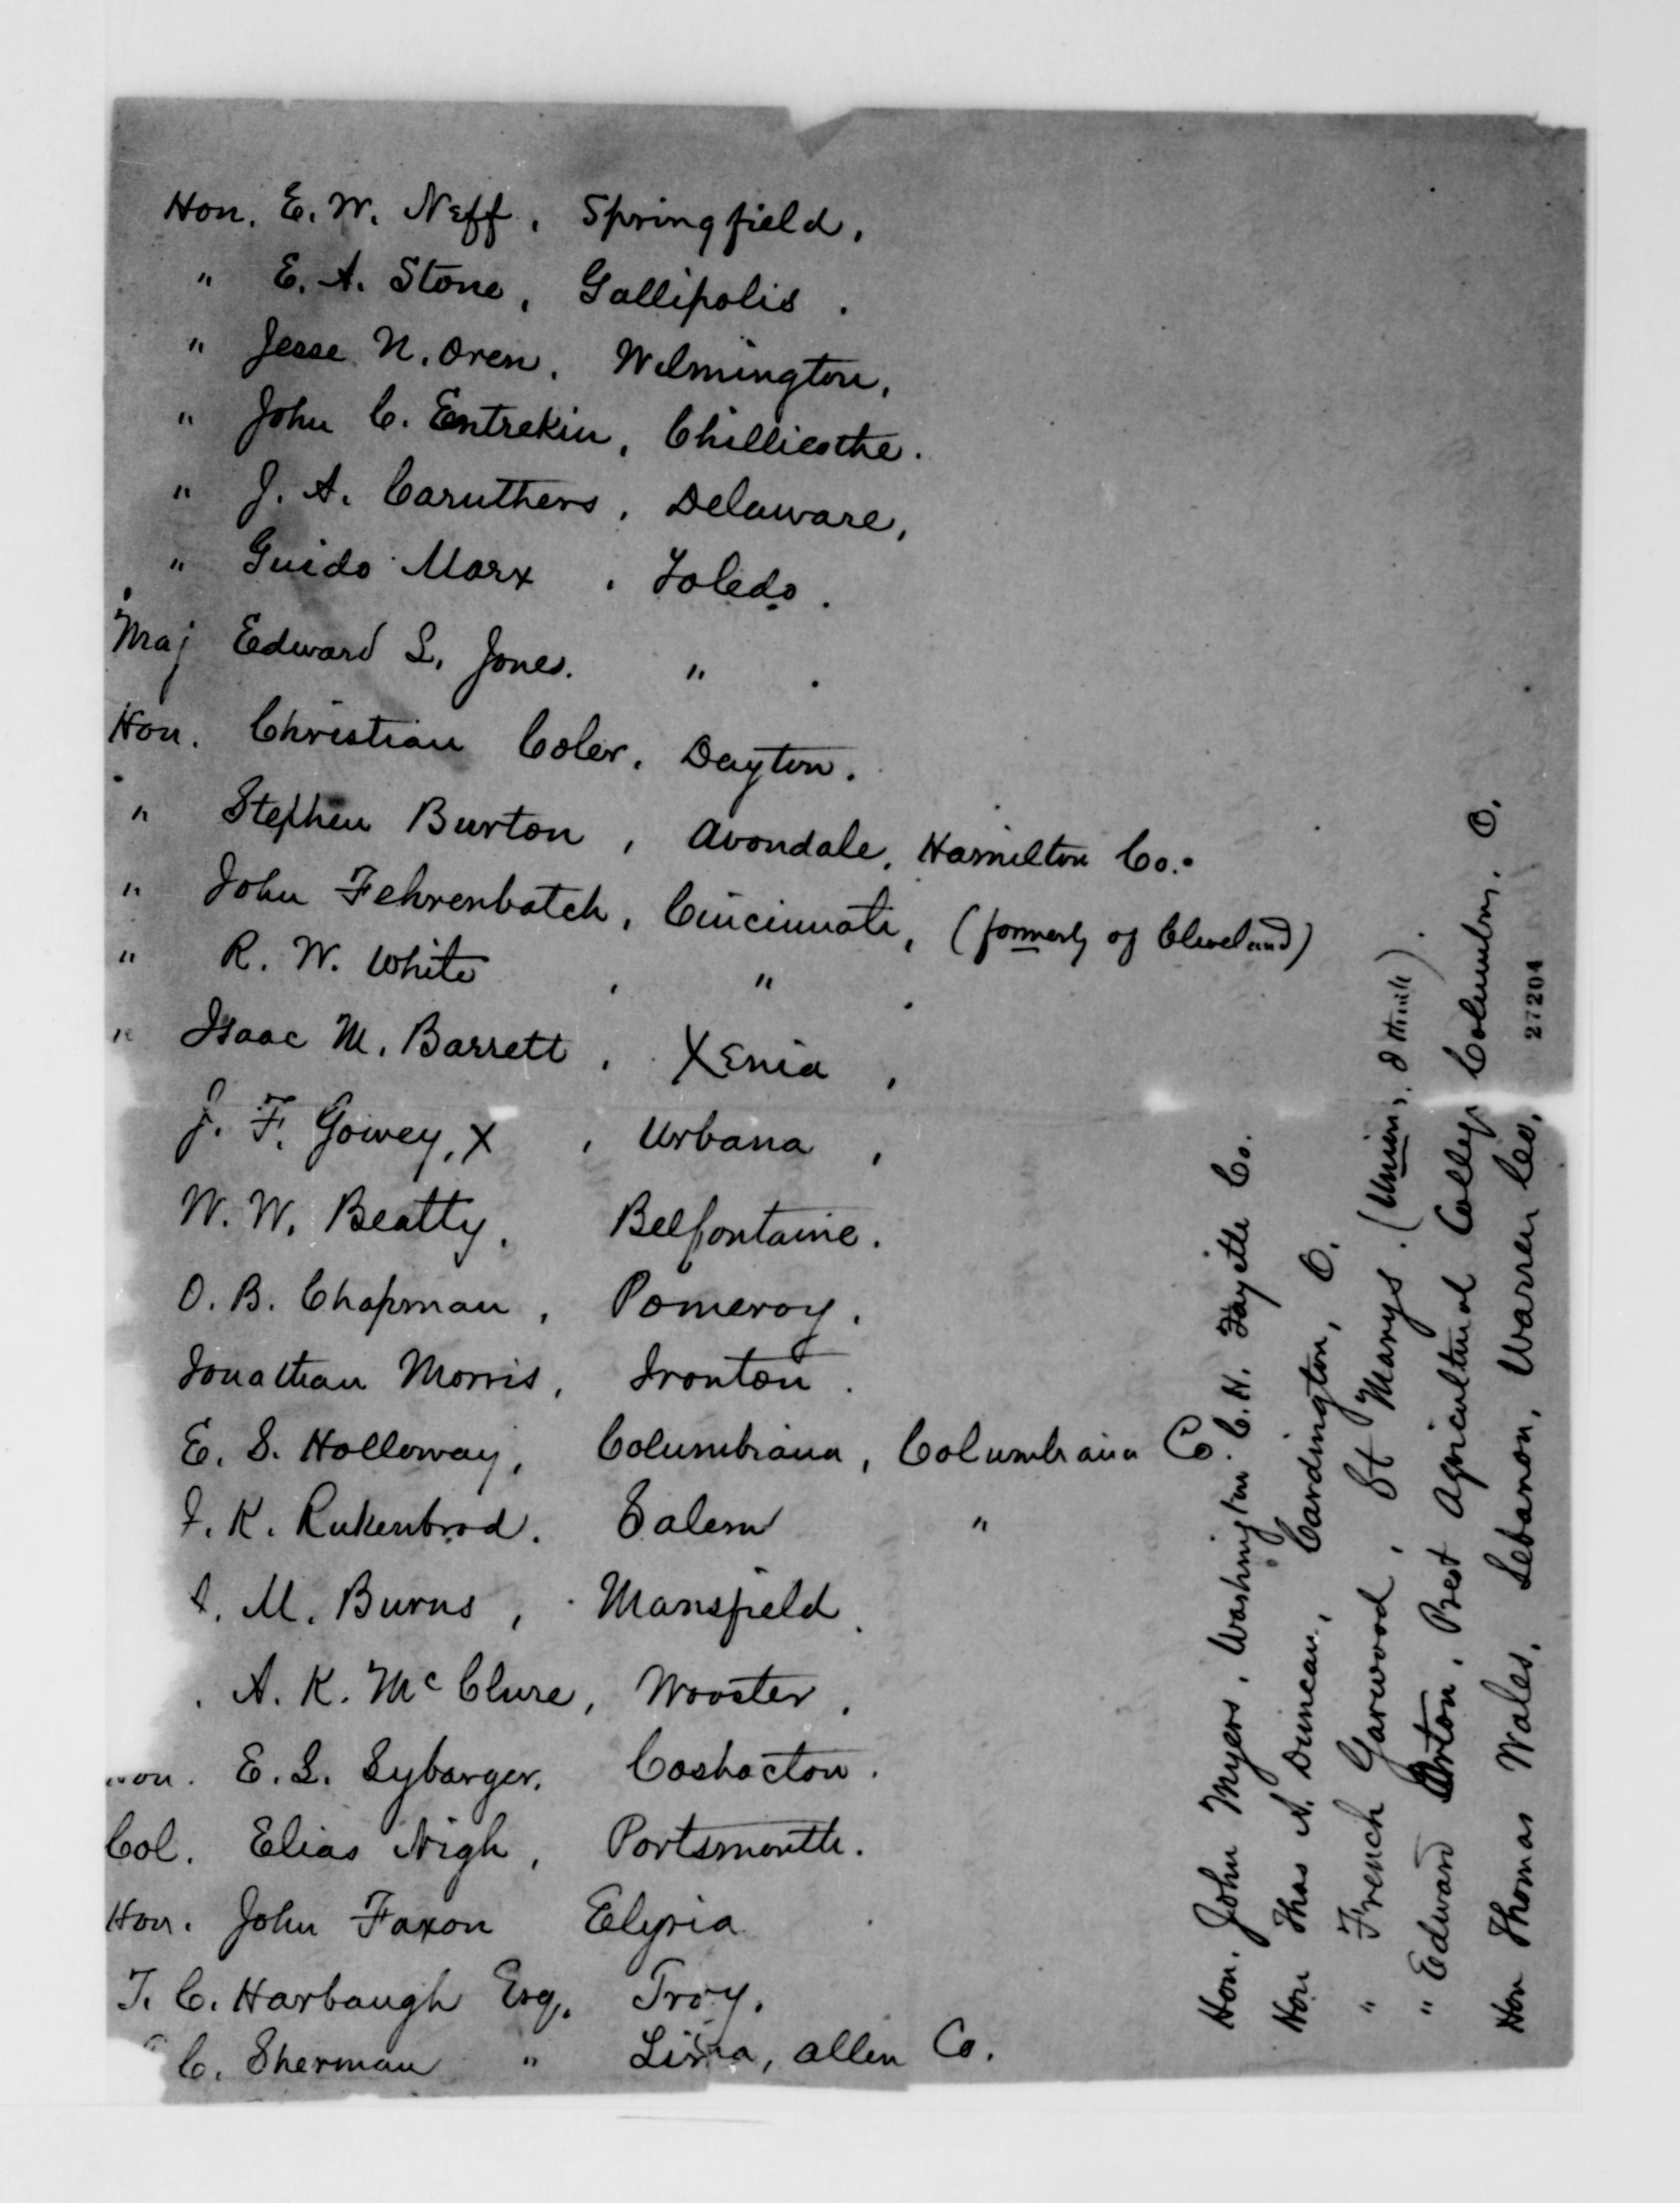 Hon. E. W. Neff, Springfield,
" E. A. Stone, Gallipolis.
" Jesse N. Oren, Wilmington,
" John C. Entrekin, Chillicothe.
" J. A. Caruthers, Delaware,
" Guido Marx, Toledo.
Maj Edward S. Jones. " .
Hon. Christian Coler, Dayton.
" Stephen Burton, Avondale, Hamilton Co.
" John Fehrenbatch, Cincinnati, (formerly of Cleveland)
" R. W. White, " .
" Isaac M. Barrett, Xenia,
J. F. Gowey, X, Urbana,
W. W. Beatty, Belfontaine.
O. B. Chapman, Pomeroy.
Jonathan Morris, Ironton.
E. S. Holloway, Columbiana, Columbiana Co.
J. K. Rukenbrod. Salem "
M. Burns, Mansfield.
A. K. McClure, Wooster.
Hon. E. L. Lybarger, Coshocton.
Col. Elias Nigh, Portsmouth.
Hon. John Faxon Elyria
T. C. Harbaugh Esq, Troy.
C. Sherman " Lima, Allen Co.
Hon. John Myers, Washington C. H. Fayette Co.
Hon Thos A. Duncan, Cardington, O.
" French Garwood, St Marys. (Union, I think).
" Edward Orton, Prest Agricultural College Columbus, O.
Hon Thomas Wales, Lebanon, Warren Co,
27204